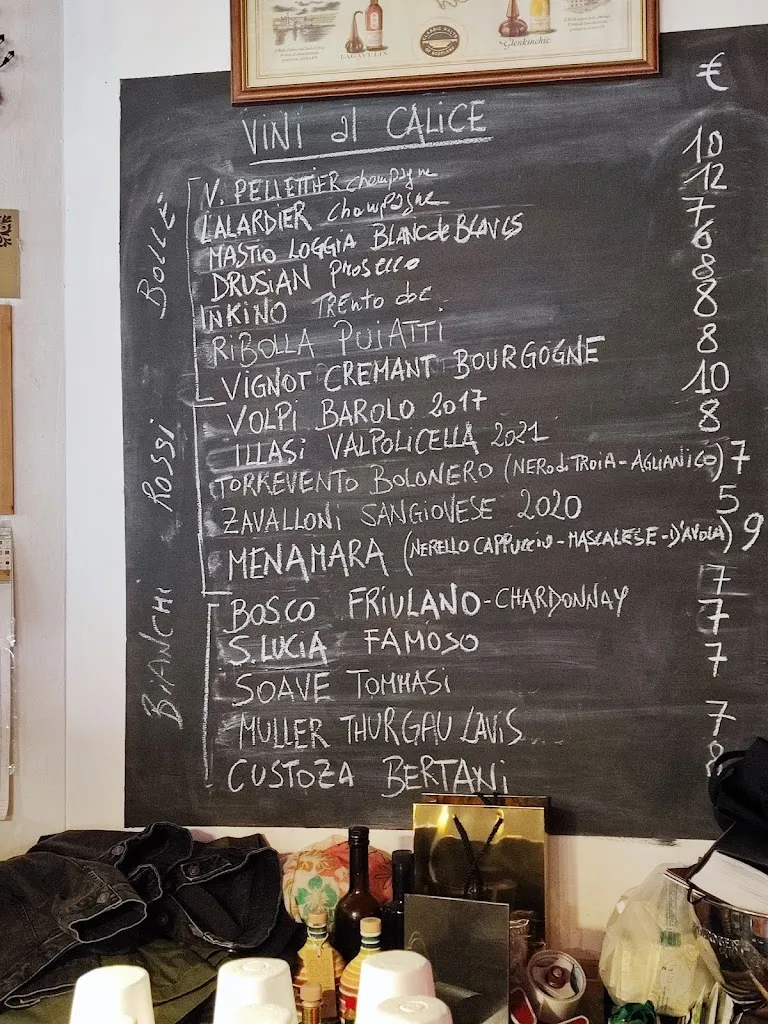 LAGAVULIN
CLASSIC MALTS OF SCOTLAND
Glenkinchie
€
VINI al CALICE
BOLLE
V. PELLETTIER champagne 10
LALARDIER champagne 12
MASTIO LOGGIA BLANC de BLANCS 7
DRUSIAN prosecco 6
INKINO TRENTO doc 8
RIBOLLA PUIATTI 8
VIGNOT CREMANT BOURGOGNE 8
ROSSI
VOLPI BAROLO 2017 10
ILLASI VALPOLICELLA 2021 8
TORREVENTO BOLONERO (NERO di TROIA - AGLIANICO) 7
ZAVALLONI SANGIOVESE 2020 5
MENAMARA (NERELLO CAPPUCCIO - MASCALESE - D'AVOLA) 9
BIANCHI
BOSCO FRIULANO - CHARDONNAY 7
S. LUCIA FAMOSO 7
SOAVE TOMMASI 7
MULLER THURGAU LAVIS 7
CUSTOZA BERTANI 8